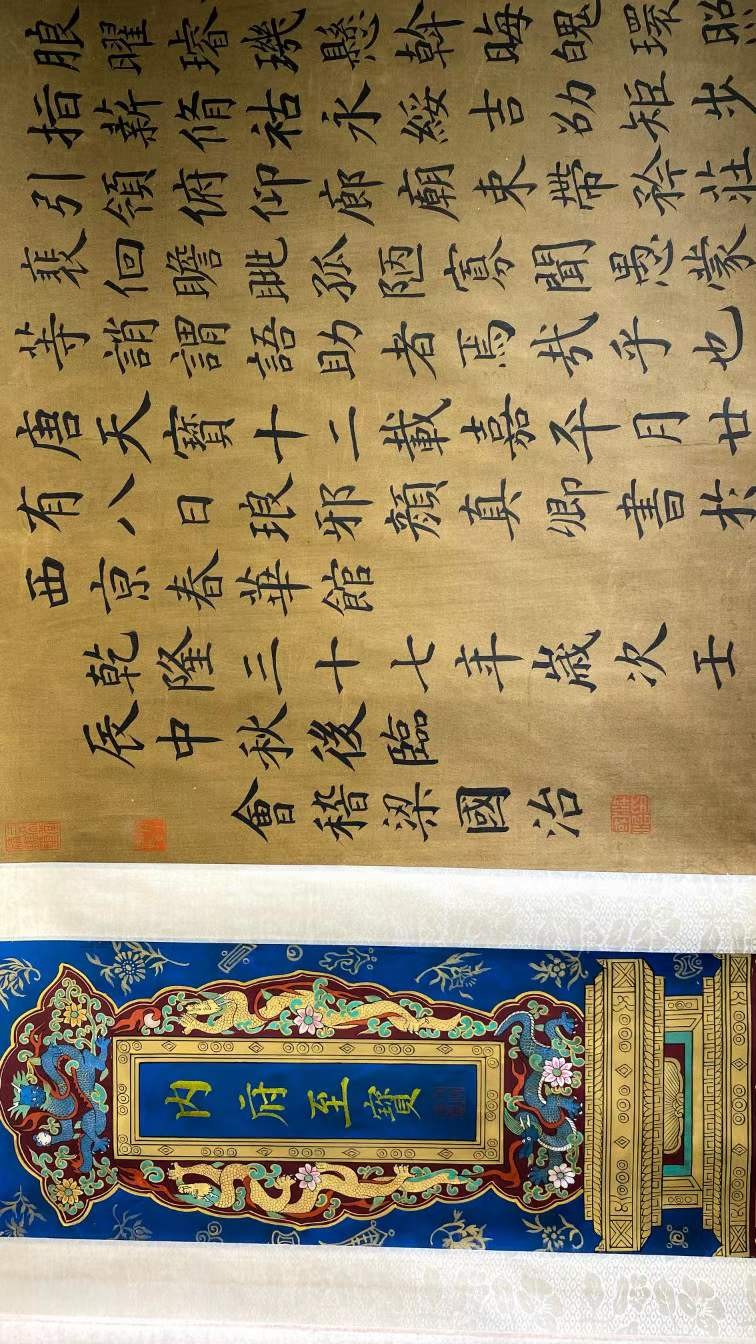 朖曜璿璣懸斡晦魄環照
指薪脩祜永綏吉劭矩步
引領俯仰廊廟束帶矜莊
裴佪瞻眺孤陋寡聞愚蒙
等誚謂語助者焉哉乎也
唐天寶十二載嘉平月廿
有八日琅邪顏真卿書於
西京春華館
乾隆三十七年歲次壬
辰中秋後臨
會稽梁國治
內府至寶